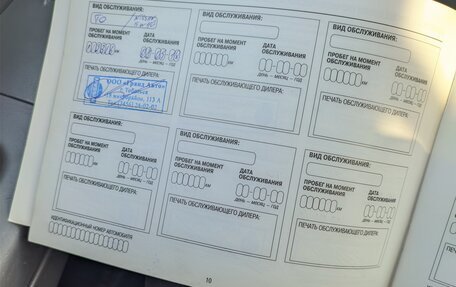 ВИД ОБСЛУЖИВАНИЯ:
ТО
ПРОБЕГ НА МОМЕНТ ОБСЛУЖИВАНИЯ
ДАТА ОБСЛУЖИВАНИЯ
КМ
ДЕНЬ — МЕСЯЦ — ГОД
ПЕЧАТЬ ОБСЛУЖИВАЮЩЕГО ДИЛЕРА:
ООО «Гранд Авто»
ВИД ОБСЛУЖИВАНИЯ:
ПРОБЕГ НА МОМЕНТ ОБСЛУЖИВАНИЯ
ДАТА ОБСЛУЖИВАНИЯ
КМ
ДЕНЬ — МЕСЯЦ — ГОД
ПЕЧАТЬ ОБСЛУЖИВАЮЩЕГО ДИЛЕРА:
ВИД ОБСЛУЖИВАНИЯ:
ПРОБЕГ НА МОМЕНТ ОБСЛУЖИВАНИЯ
ДАТА ОБСЛУЖИВАНИЯ
КМ
ДЕНЬ — МЕСЯЦ — ГОД
ПЕЧАТЬ ОБСЛУЖИВАЮЩЕГО ДИЛЕРА:
ВИД ОБСЛУЖИВАНИЯ:
ПРОБЕГ НА МОМЕНТ ОБСЛУЖИВАНИЯ
ДАТА ОБСЛУЖИВАНИЯ
КМ
ДЕНЬ — МЕСЯЦ — ГОД
ПЕЧАТЬ ОБСЛУЖИВАЮЩЕГО ДИЛЕРА:
ВИД ОБСЛУЖИВАНИЯ:
ПРОБЕГ НА МОМЕНТ ОБСЛУЖИВАНИЯ
ДАТА ОБСЛУЖИВАНИЯ
КМ
ДЕНЬ — МЕСЯЦ — ГОД
ПЕЧАТЬ ОБСЛУЖИВАЮЩЕГО ДИЛЕРА:
ВИД ОБСЛУЖИВАНИЯ:
ПРОБЕГ НА МОМЕНТ ОБСЛУЖИВАНИЯ
ДАТА ОБСЛУЖИВАНИЯ
КМ
ДЕНЬ — МЕСЯЦ — ГОД
ПЕЧАТЬ ОБСЛУЖИВАЮЩЕГО ДИЛЕРА:
ИДЕНТИФИКАЦИОННЫЙ НОМЕР АВТОМОБИЛЯ
10